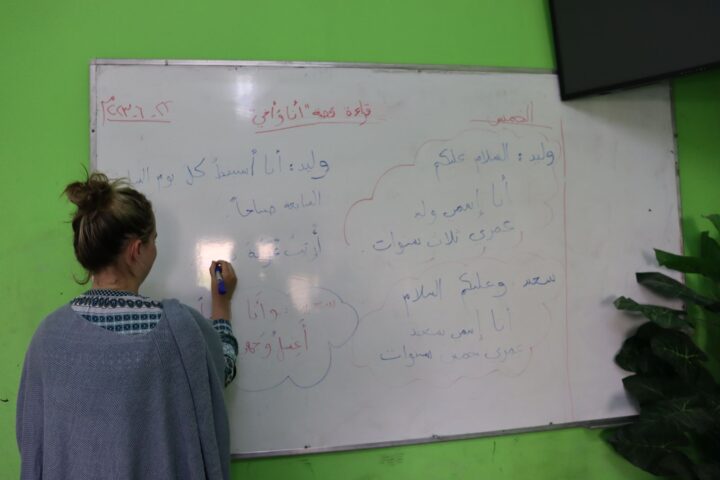 الخميس
قراءة قصة "أنا وأخي"
٢٢-٦-٢٠٢٣م
وليد: السلام عليكم
أنا إسمي وليد
عمري ثلاث سنوات.
سعيد وعليكم السلام
أنا إسمي سعيد
عمري خمس سنوات
وليد: أنا أستيقظ كل يوم
السابعة صباحاً.
أرتب غرفة
وأنا
أغسل وجهي